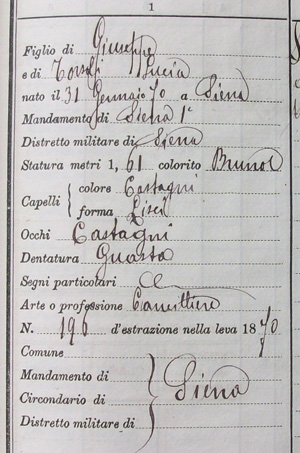 1
Figlio di Giuseppe
e di Torselli Lucia
nato il 31 Gennaio 70 a Siena
Mandamento di Siena 1°
Distretto militare di Siena
Statura metri 1, 61 colorito Bruno
Capelli { colore Castagni
forma Lisci
Occhi Castagni
Dentatura Guasta
Segni particolari
Arte o professione
N. 196 d'estrazione nella leva 1870
Comune
Mandamento di
Circondario di } Siena
Distretto militare di